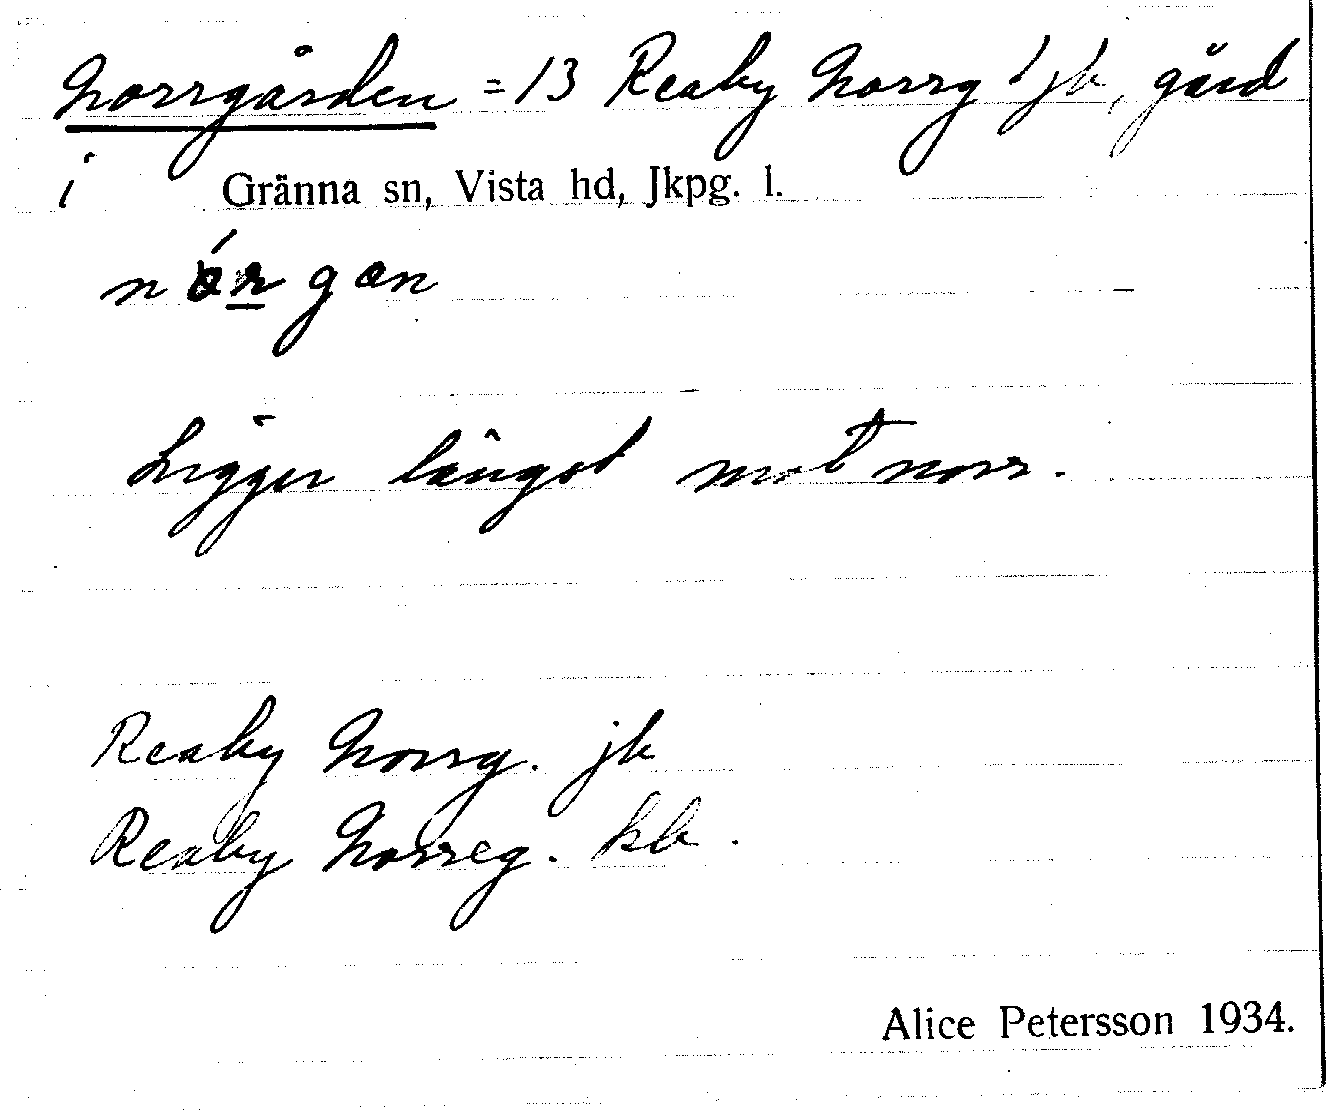 Norrgården = 13 Reaby Norrg 1 jb, gård
i Gränna sn, Vista hd, Jkpg. l.
nórgan
Ligger längst mot norr.
Reaby Norrg. jb
Reaby Norreg. kb.
Alice Petersson 1934.